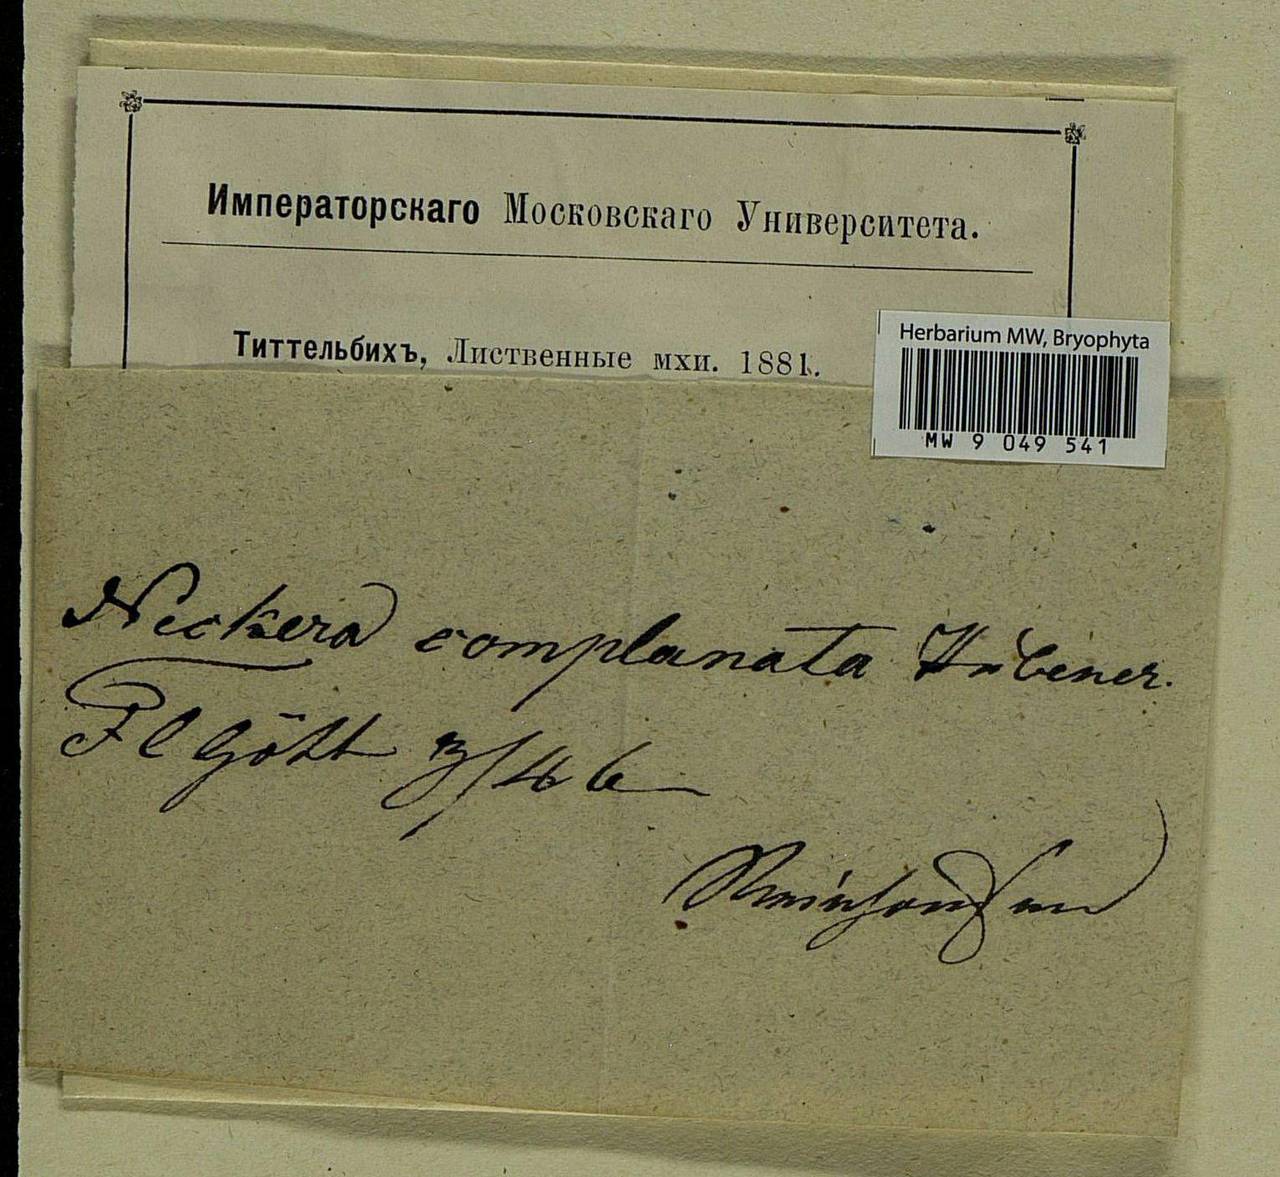 Императорскаго Московскаго Университета.
Титтельбихъ, Лиственные мхи. 1881.
Herbarium MW, Bryophyta
MW 9 049 541
Neckera complanata Hübener.
Fl Gött 3/46